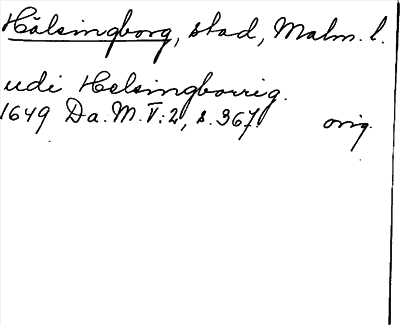 Hälsingborg, stad, Malm. l.
udi Helsingborrig.
1649 Da. M. V:2, s. 367. orig.